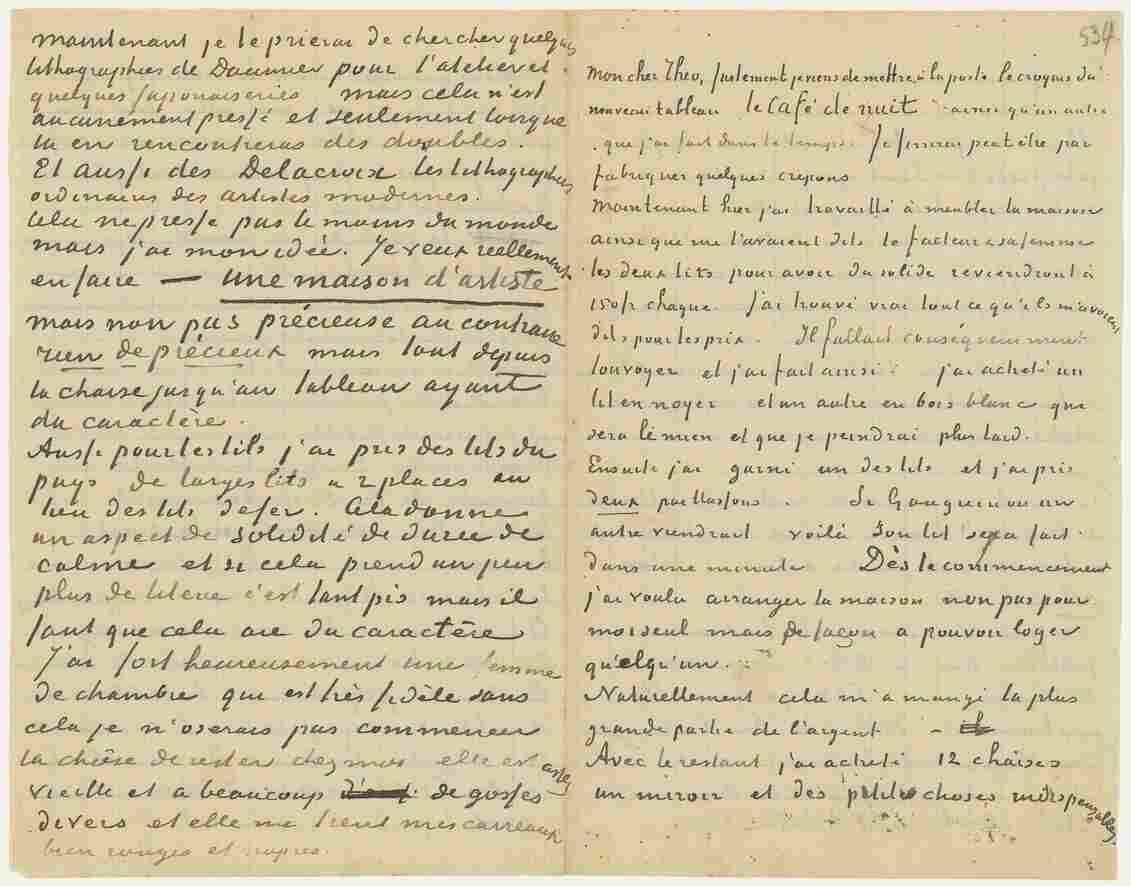 maintenant je te prierai de chercher quelques
lithographies de Daumier pour l'atelier et
quelques Japonaiseries mais cela n'est
aucunement pressé et seulement lorque
tu en rencontreras des doubles.
Et aussi des Delacroix les lithographies
ordinaires des artistes modernes.
Cela ne presse pas le moins du monde
mais j'ai mon idée. Je veux réellement
en faire — une maison d'artiste
mais non pas précieuse au contraire
rien de précieux mais tout depuis
la chaise jusqu'au tableau ayant
du caractère.
Aussi pour les lits j'ai pris des lits du
pays de larges lits a 2 places au
lieu des lits de fer. Cela donne
un aspect de solidité de durée de
calme et si cela prend un peu
plus de literie c'est tant pis mais il
faut que cela aie du caractère
J'ai fort heureusement une femme
de chambre qui est très fidèle sans
cela je n'oserais pas commencer
la chôse de rester chez moi elle est assez
vieille et a beaucoup de gosses
divers et elle me tient mes carreaux
bien rouges et propres
534
Mon cher Theo, justement je viens de mettre à la poste le croquis du
nouveau tableau le café de nuit ainsi qu'un autre
que j'ai fait dans le temps. Je finirai peut être par
fabriquer quelques crepons
Maintenant hier j'ai travaillé à meubler la maison
ainsi que me l'avaient dits le facteur & sa femme
les deux lits pour avoir du solide reviendront à
150 fr chaque. J'ai trouvé vrai tout ce qu'ils m'avaient
dits pour les prix. Il fallait conséquemment
louvoyer et j'ai fait ainsi: j'ai acheté un
lit en noyer et un autre en bois blanc qui
sera le mien et que je peindrai plus tard.
Ensuite j'ai garni un des lits et j'ai pris
deux paillassons. Si Gauguin ou un
autre viendrait voilà Son lit sera fait
dans une minute Dès le commencement
j'ai voulu arranger la maison non pas pour
moi seul mais de façon a pouvoir loger
quelqu'un.
Naturellement cela m'a mangé la plus
grande partie de l'argent -
Avec le restant j'ai acheté 12 chaises
un miroir et des petites choses indispensables,